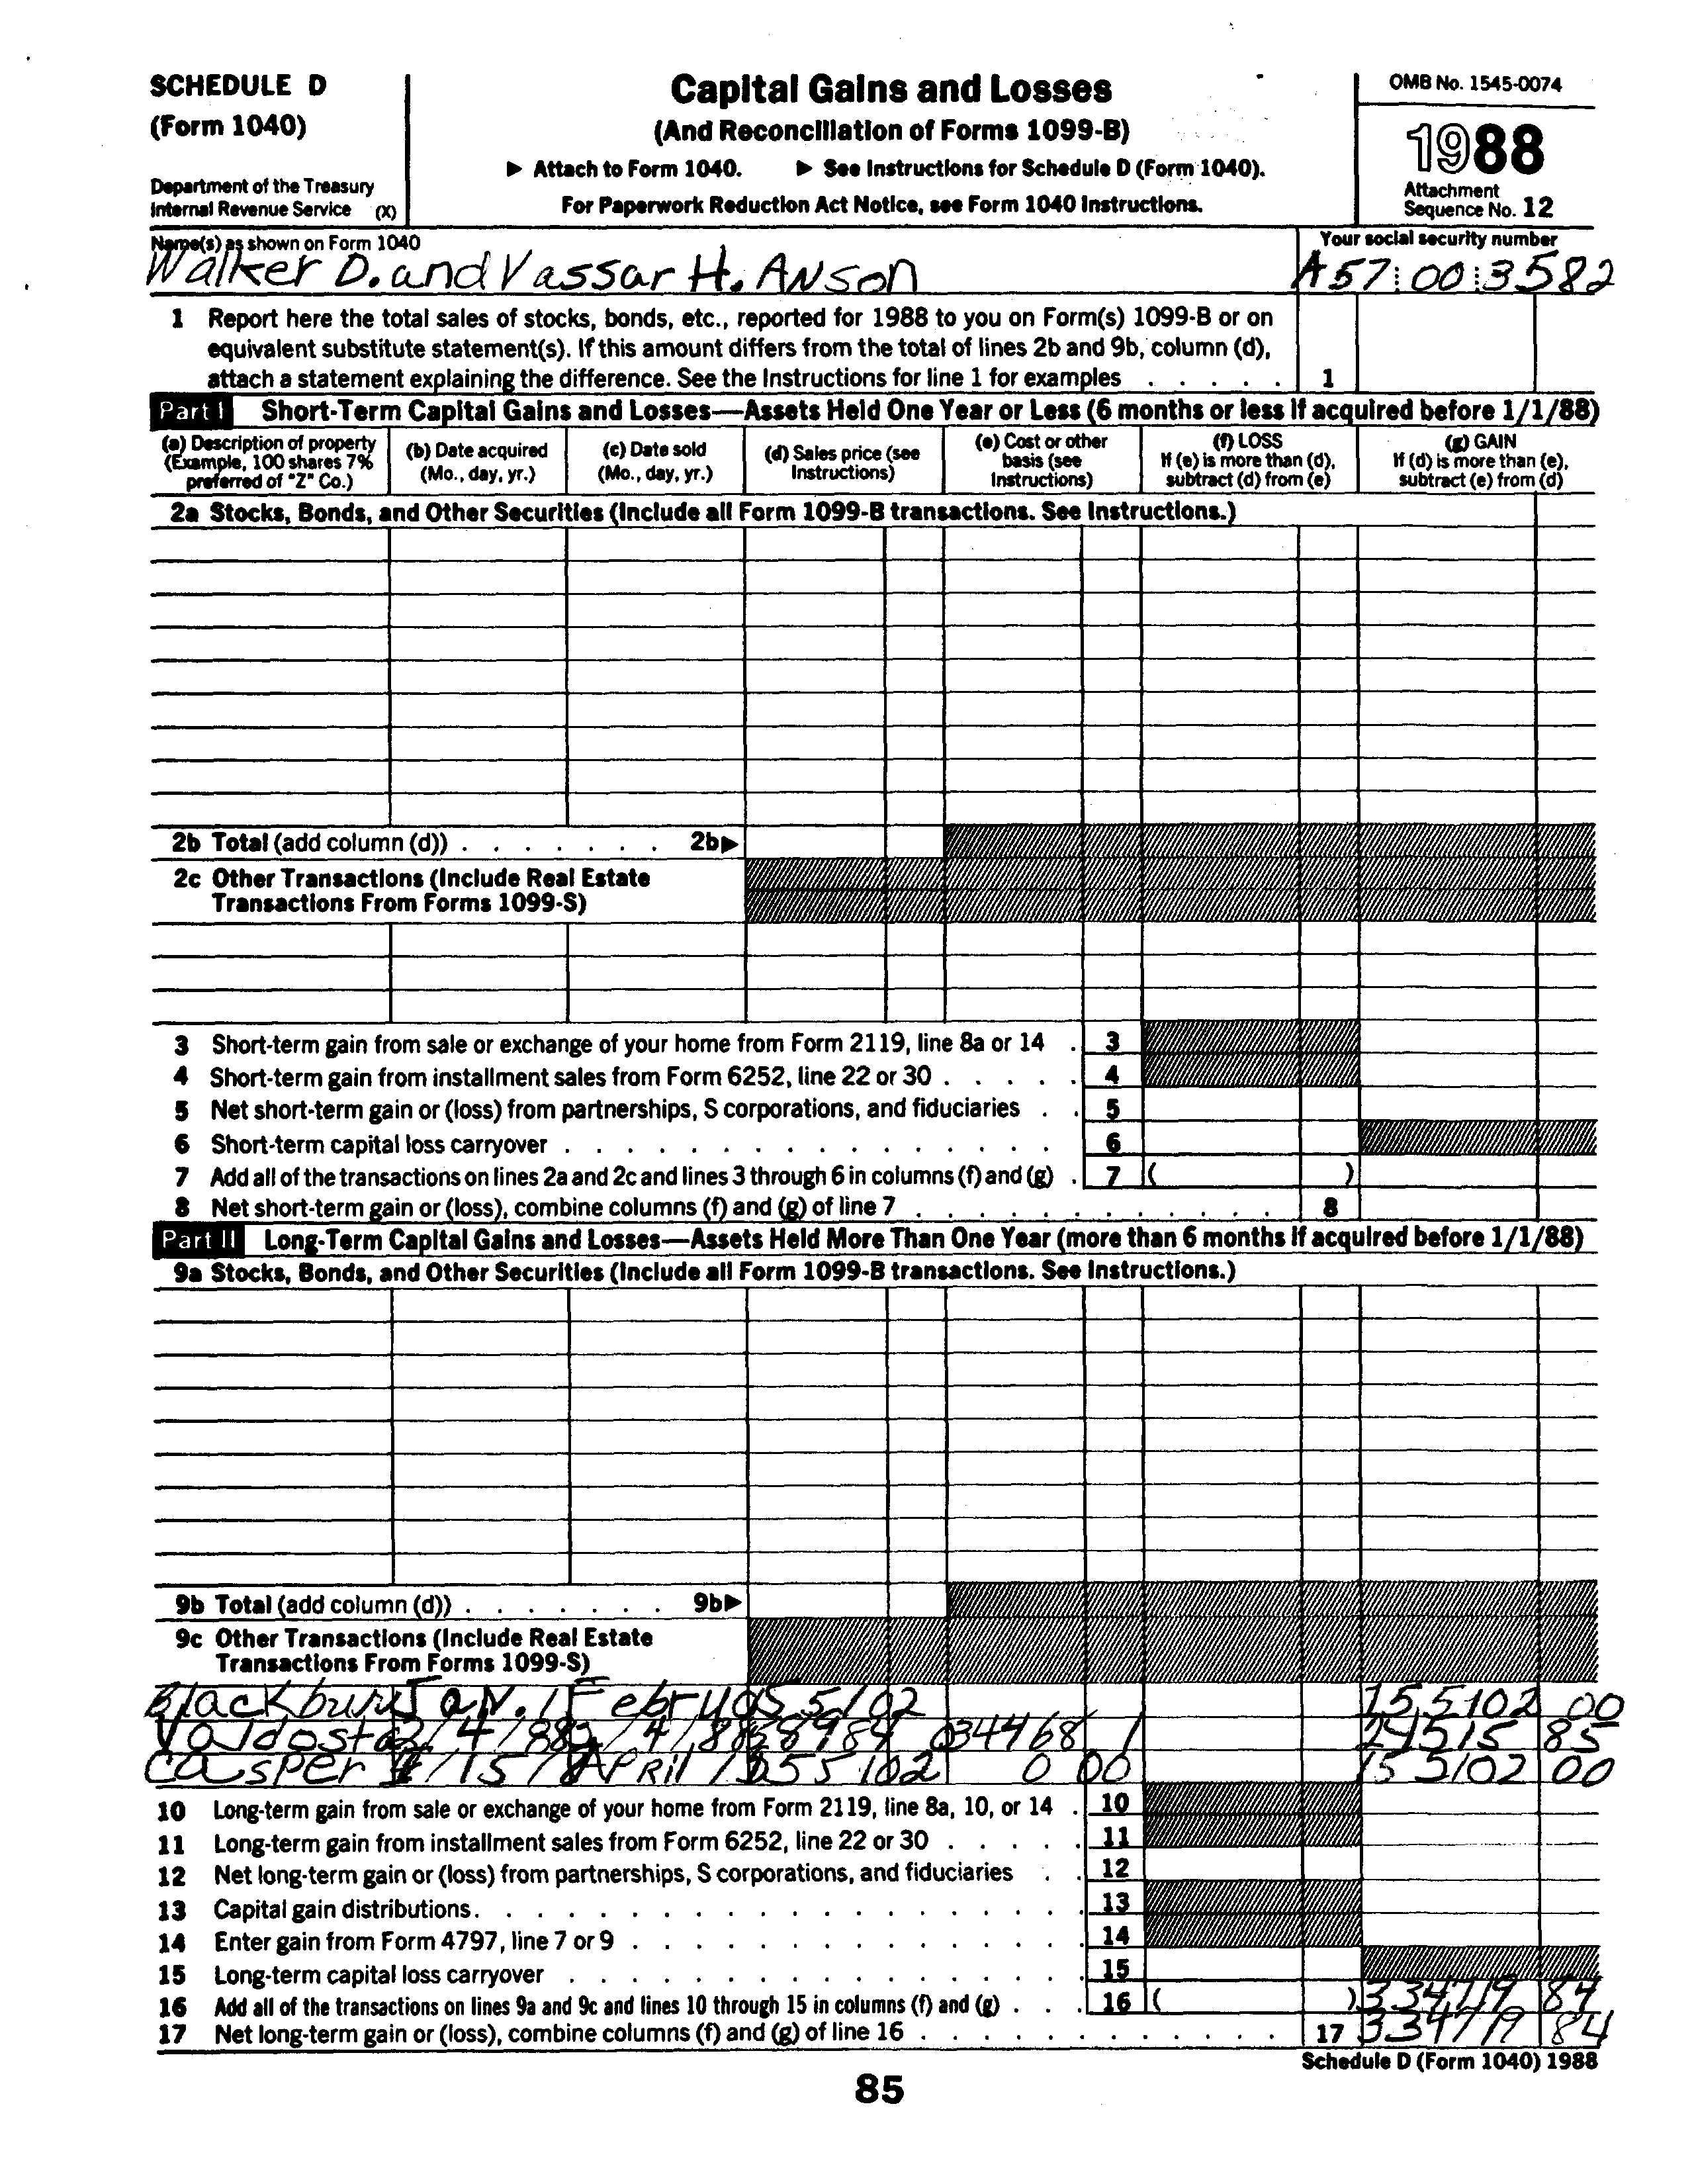 SCHEDULE D
(Form 1040)
Department of the Treasury
Internal Revenue Service (X)
Capital Gains and Losses
(And Reconciliation of Forms 1099-B)
▶ Attach to Form 1040. ▶ See Instructions for Schedule D (Form 1040).
For Paperwork Reduction Act Notice, see Form 1040 Instructions.
OMB No. 1545-0074
1988
Attachment
Sequence No. 12
Name(s) as shown on Form 1040
Walker D. and Vassar H. ANSON
Your social security number
A57 00 3582
1 Report here the total sales of stocks, bonds, etc., reported for 1988 to you on Form(s) 1099-B or on
equivalent substitute statement(s). If this amount differs from the total of lines 2b and 9b, column (d),
attach a statement explaining the difference. See the Instructions for line 1 for examples . . . . . 1
Part I Short-Term Capital Gains and Losses—Assets Held One Year or Less (6 months or less if acquired before 1/1/88)
(a) Description of property
(Example, 100 shares 7%
preferred of "Z" Co.)
(b) Date acquired
(Mo., day, yr.)
(c) Date sold
(Mo., day, yr.)
(d) Sales price (see
Instructions)
(e) Cost or other
basis (see
Instructions)
(f) LOSS
If (e) is more than (d),
subtract (d) from (e)
(g) GAIN
If (d) is more than (e),
subtract (e) from (d)
2a Stocks, Bonds, and Other Securities (Include all Form 1099-B transactions. See Instructions.)
2b Total (add column (d)) . . . . . . . 2b▶
2c Other Transactions (Include Real Estate
Transactions From Forms 1099-S)
3 Short-term gain from sale or exchange of your home from Form 2119, line 8a or 14 . 3
4 Short-term gain from installment sales from Form 6252, line 22 or 30 . . . . . 4
5 Net short-term gain or (loss) from partnerships, S corporations, and fiduciaries . . 5
6 Short-term capital loss carryover . . . . . . . . . . . . . . . . 6
7 Add all of the transactions on lines 2a and 2c and lines 3 through 6 in columns (f) and (g) . 7 ( )
8 Net short-term gain or (loss), combine columns (f) and (g) of line 7 . . . . . . . . . . . . 8
Part II Long-Term Capital Gains and Losses—Assets Held More Than One Year (more than 6 months if acquired before 1/1/88)
9a Stocks, Bonds, and Other Securities (Include all Form 1099-B transactions. See Instructions.)
9b Total (add column (d)) . . . . . . . 9b▶
9c Other Transactions (Include Real Estate
Transactions From Forms 1099-S)
Blackburn Jan. 1 155102 00
Valdosta 2/4/88 34468 1 24515 85
Casper April 155102 0 00 155102 00
10 Long-term gain from sale or exchange of your home from Form 2119, line 8a, 10, or 14 . 10
11 Long-term gain from installment sales from Form 6252, line 22 or 30 . . . . . 11
12 Net long-term gain or (loss) from partnerships, S corporations, and fiduciaries . . 12
13 Capital gain distributions . . . . . . . . . . . . . . . . . . . 13
14 Enter gain from Form 4797, line 7 or 9 . . . . . . . . . . . . . . 14
15 Long-term capital loss carryover . . . . . . . . . . . . . . . . 15
16 Add all of the transactions on lines 9a and 9c and lines 10 through 15 in columns (f) and (g) . . . 16 ( ) 334719 84
17 Net long-term gain or (loss), combine columns (f) and (g) of line 16 . . . . . . . . . . . . 17 334719 84
Schedule D (Form 1040) 1988
85